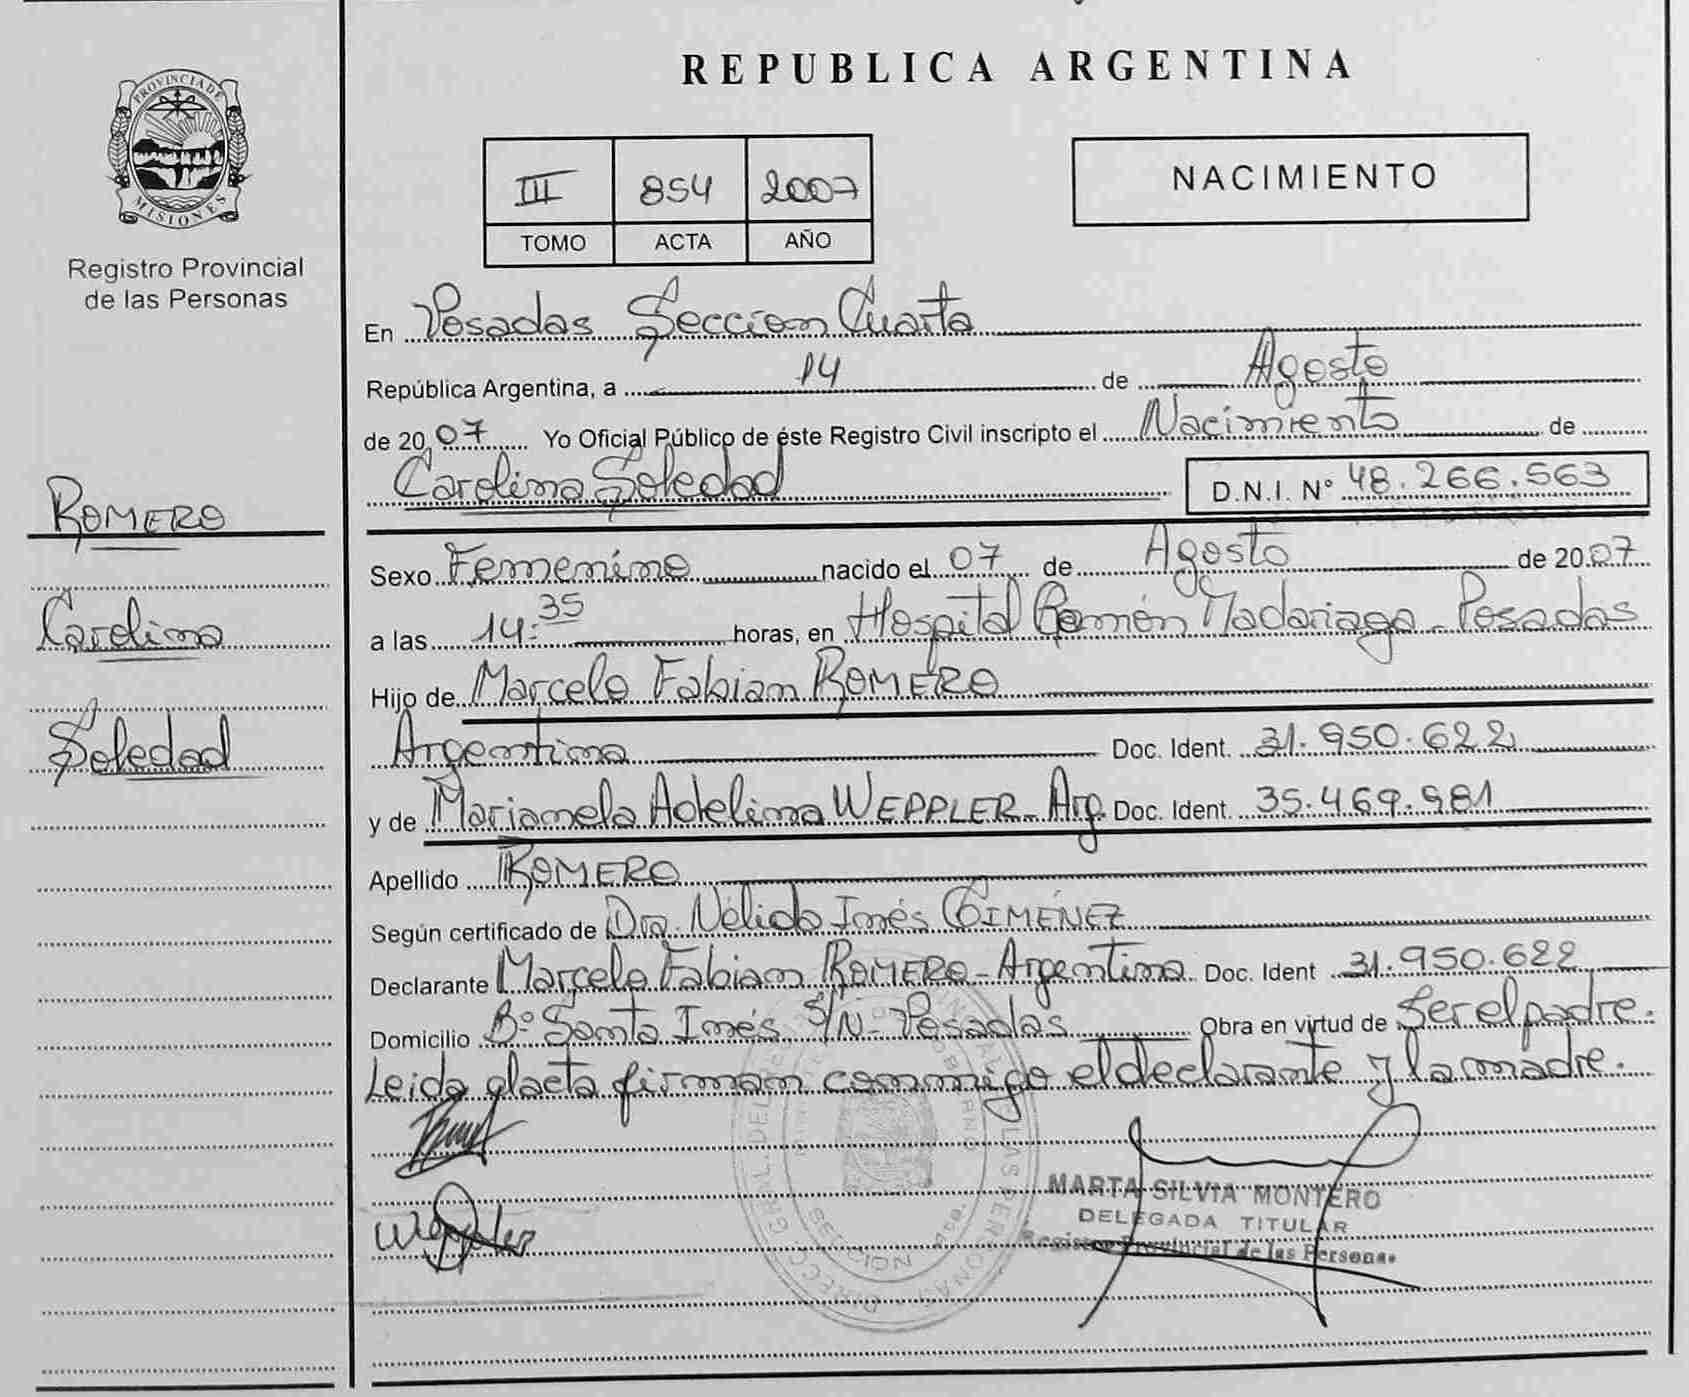 PROVINCIA DE
MISIONES
Registro Provincial
de las Personas
ROMERO
Carolina
Soledad
REPUBLICA ARGENTINA
III 854 2007
TOMO ACTA AÑO
NACIMIENTO
En Posadas Sección Cuarta
República Argentina, a 14 de Agosto
de 2007 Yo Oficial Público de éste Registro Civil inscripto el Nacimiento de
Carolina Soledad D.N.I. N° 48.266.563
Sexo Femenino nacido el 07 de Agosto de 2007
a las 14:35 horas, en Hospital Ramón Madariaga - Posadas
Hijo de Marcelo Fabian ROMERO
Argentina Doc. Ident. 31.950.622
y de Marianela Adelina WEPPLER - Arg. Doc. Ident. 35.469.981
Apellido ROMERO
Según certificado de Dra. Nélida Inés GIMÉNEZ
Declarante Marcelo Fabian ROMERO - Argentina Doc. Ident 31.950.622
Domicilio B° Santa Inés S/N - Posadas Obra en virtud de Ser el padre.
Leida el acta firman conmigo el declarante y la madre.
MARTA SILVIA MONTERO
DELEGADA TITULAR
Registro Provincial de las Personas